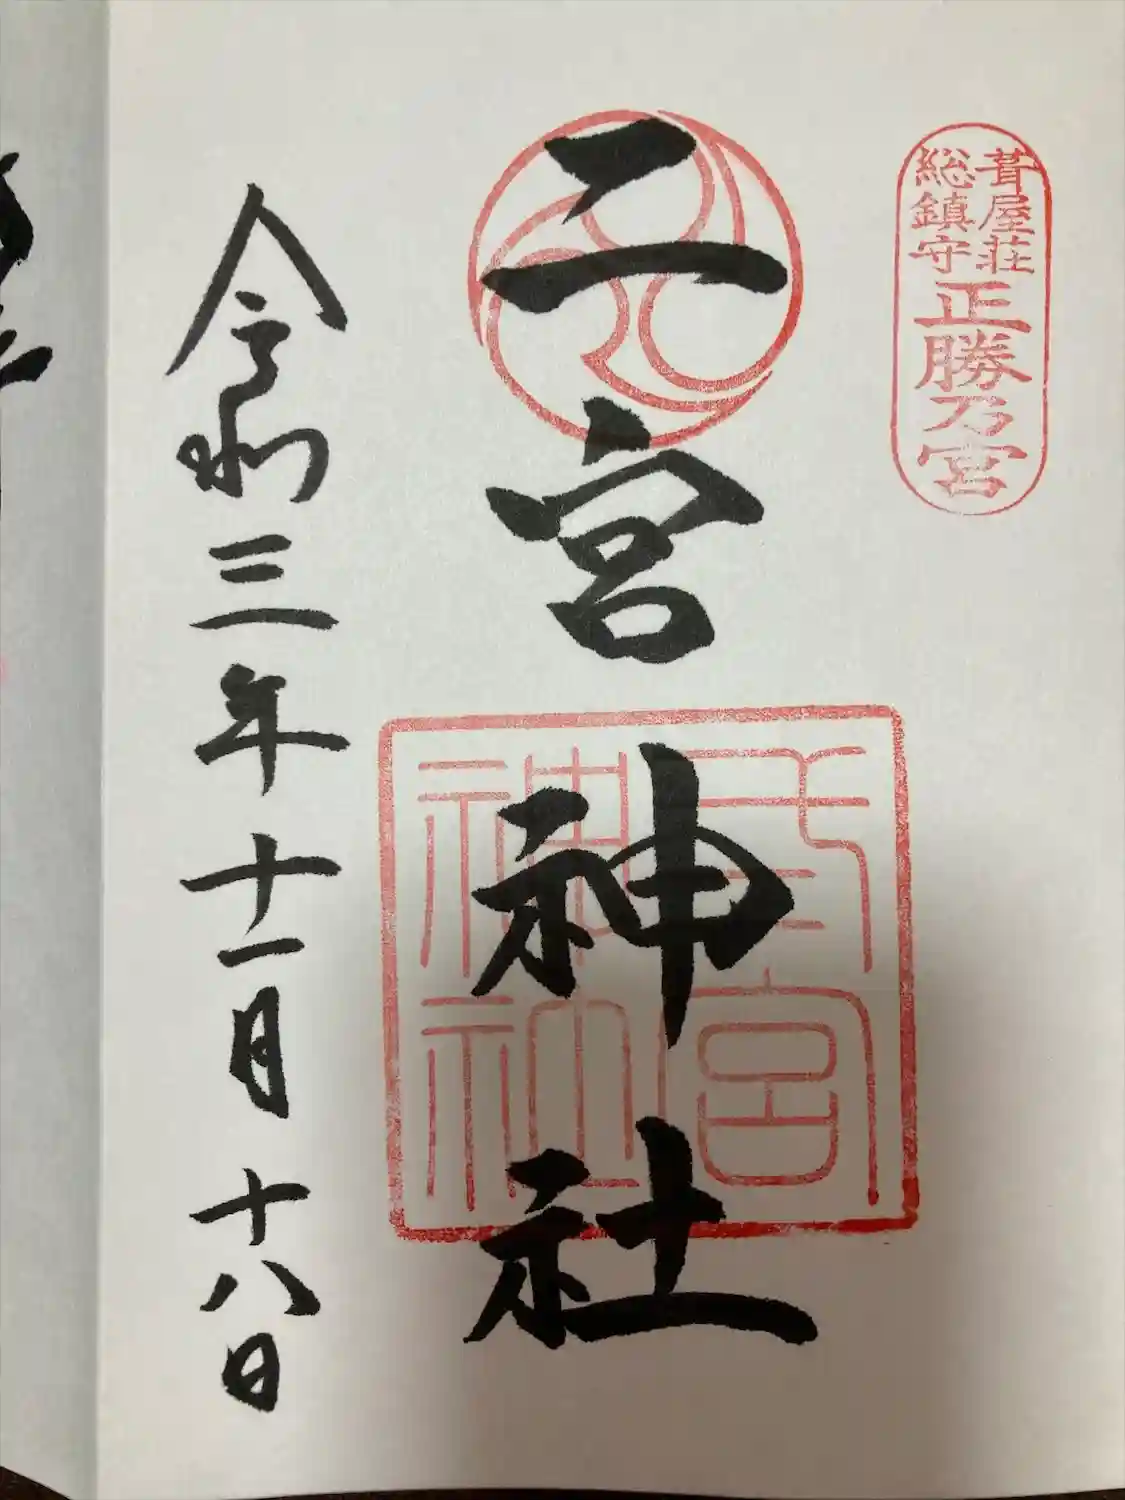 葺屋荘
総鎮守
正勝乃宮
二宮神社
宮
神社
令和三年十一月十八日